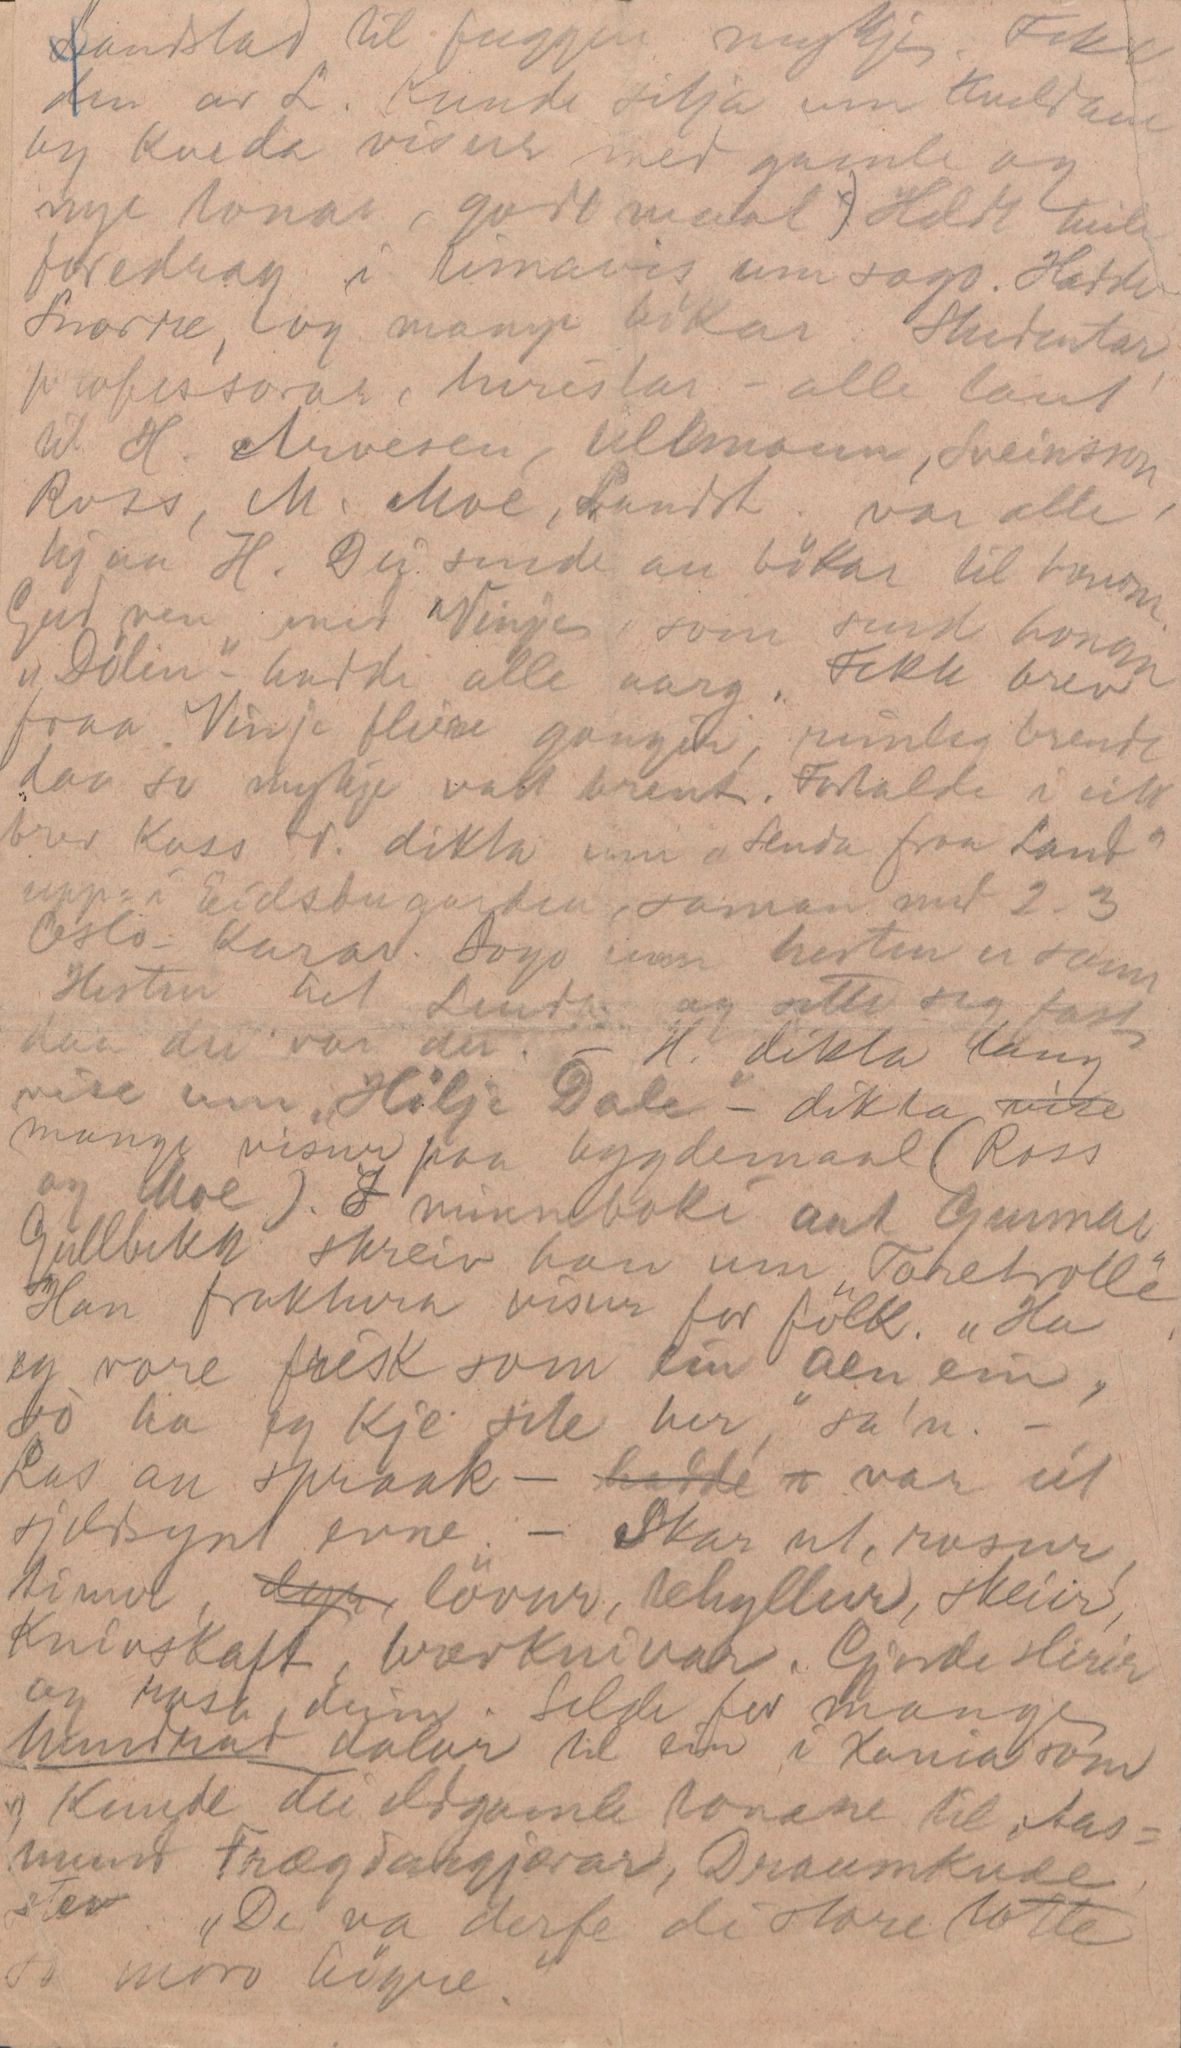 Landstad til fuggen mykje. Fekk
den av L. Kunde sitja um kveldane
og kveda visur med gamle og
nye tonar, godt maal x) Heldt heile
foredrag i timavis um sogo. Hadde
Snorre, og mange bökar. Studentar,
professorar, turistar - alle laut
til H. Arvesen, Ullmann, Sveinsson,
Ross, M. Moe, Landst. var alle
hjaa H. Dei sende an bökar til honom.
God ven med Vinje, som send honom
"Dölen" - hadde alle aarg. Fekk brev
fraa Vinje fleire gongir, rimleg brende
daa so mykje vart brent. Fortalde i eitt
brev koss V. dikta um "Senda fraa Land"
upp i Eidsbugarden, saman med 2-3
Oslo-karar. Sogo um hesten er sann
Hesten het Lende og sette seg fast
daa dei var der. - H. dikta lang
vise um "Hölje Dale" - dikta vise
mange visur paa bygdemaal (Ross
og Moe). I minneboki aat Gunnar
Gullbekk skreiv han um "Taretrolle"
Han fraktura visur for fölk. "Ha
eg vore frisk som ein aen ein,
so ha eg kje site her," sa'n. -
Las an spraak - hadde x var eit
sjeldsynt evne. - Skar ut, rosur,
tinur, lövur, tehyllur, skeir,
Knivskaft, brevknivar. Gjorde slirir
og rosa deim. Selde for mange
hundrad dalar til ein i Kania som
x) Kunde dei eldgamle tonane til Aas=
mund Frægdagjævar, Draumkvae
stev "De va derfe di store totte
so moro högre."